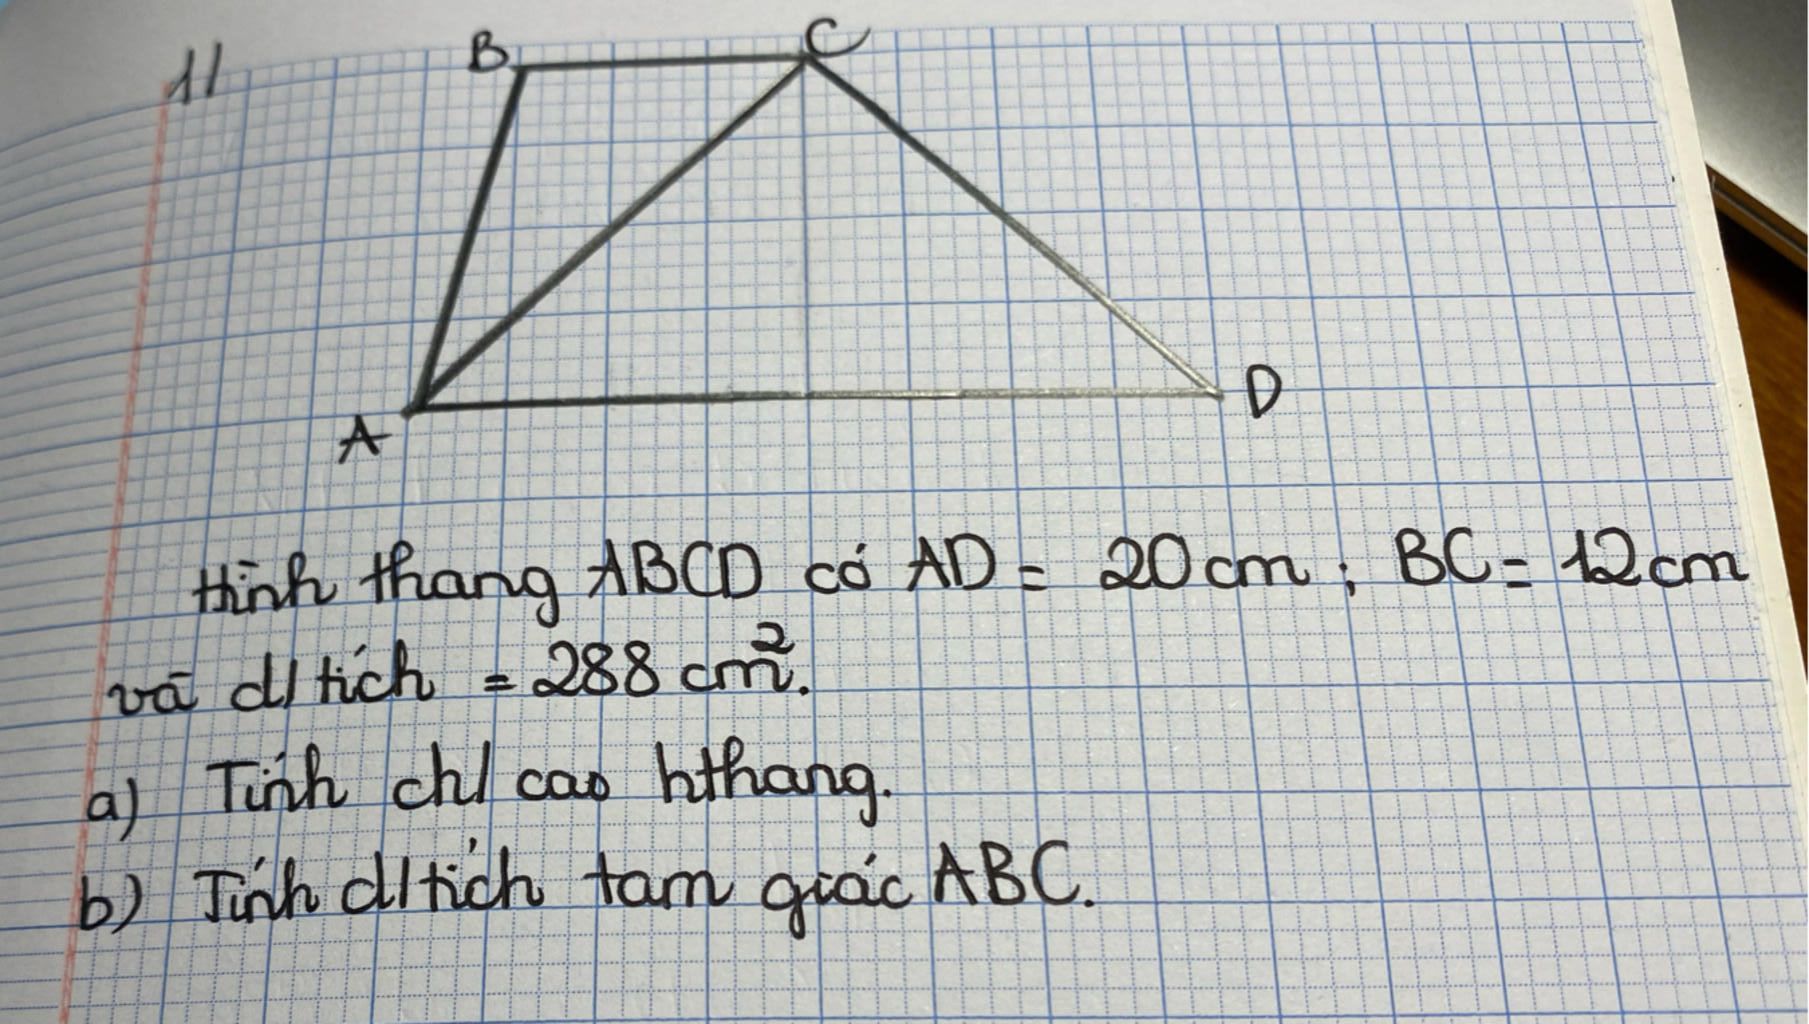 1/
B C
A D
Hình thang ABCD có AD = 20cm; BC = 12cm
và d/tích = 288 cm².
a) Tính ch/ cao hthang.
b) Tính d/tích tam giác ABC.